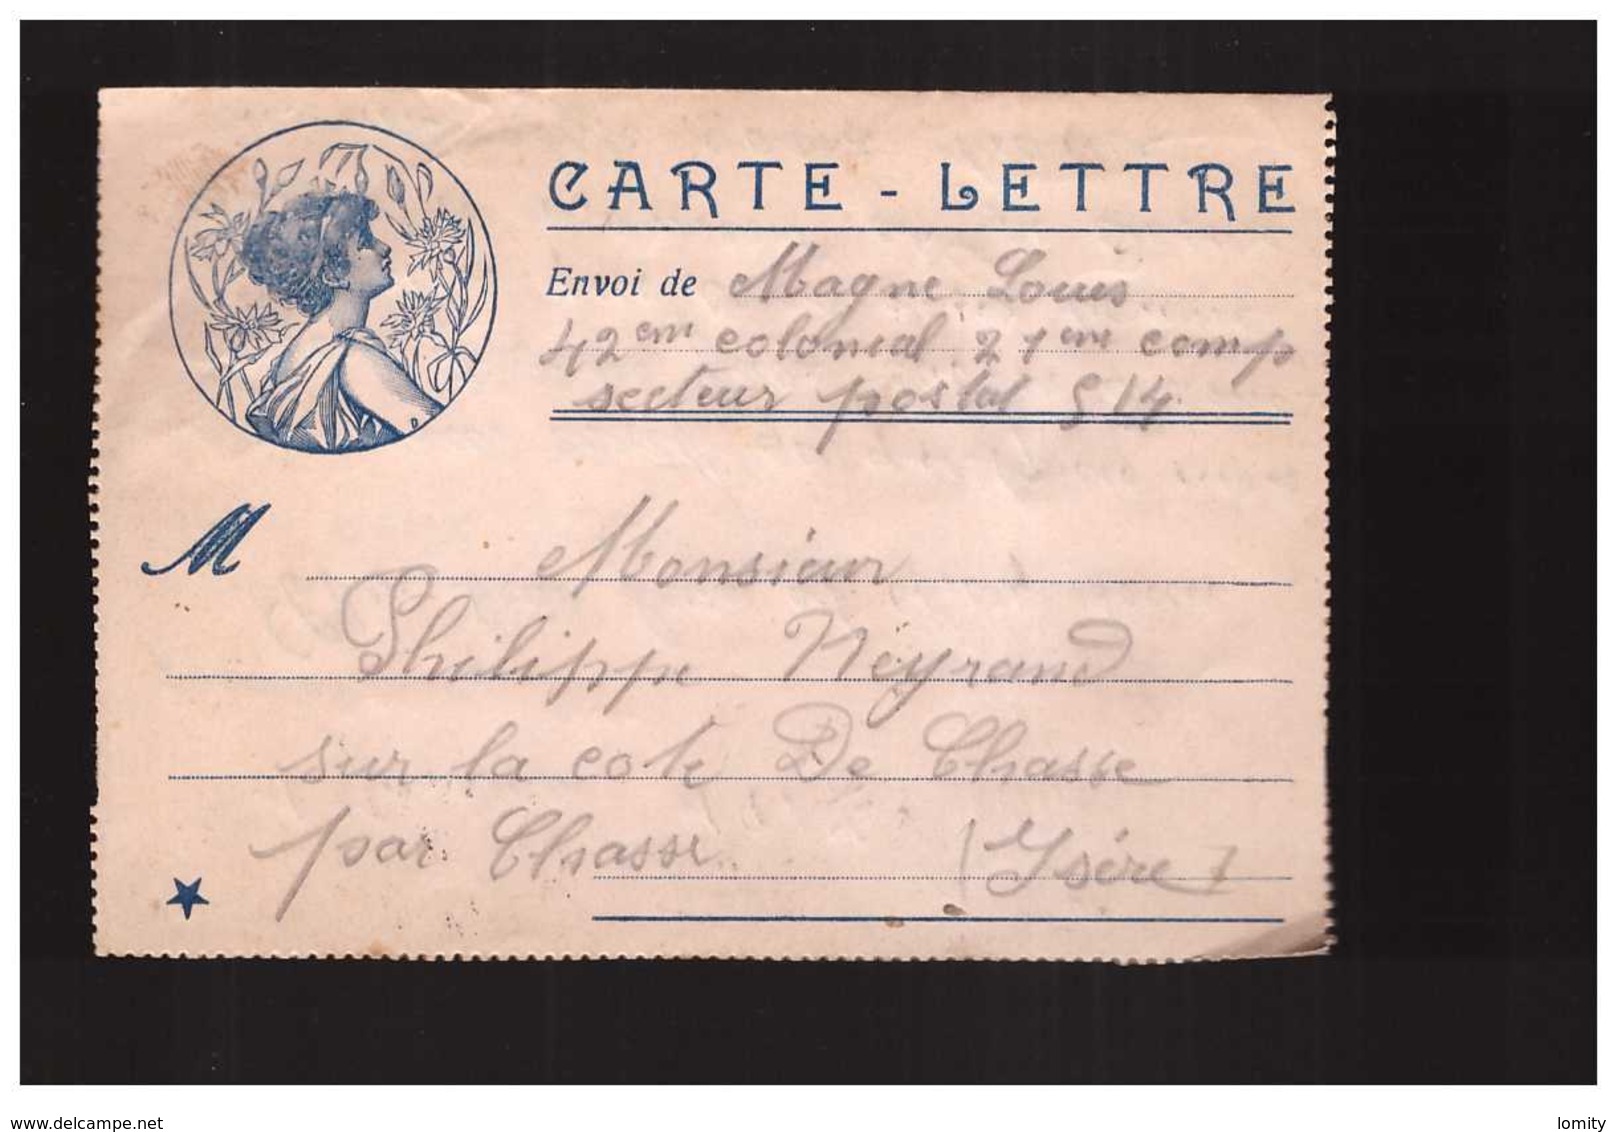 CARTE - LETTRE
Envoi de Magne Louis
42em colonial 21eme comp
secteur postal 514
M Monsieur
Philippe Neyrand
sur la cote De Chasse
par Chasse (Isère)
D
www.delcampe.net
lomity